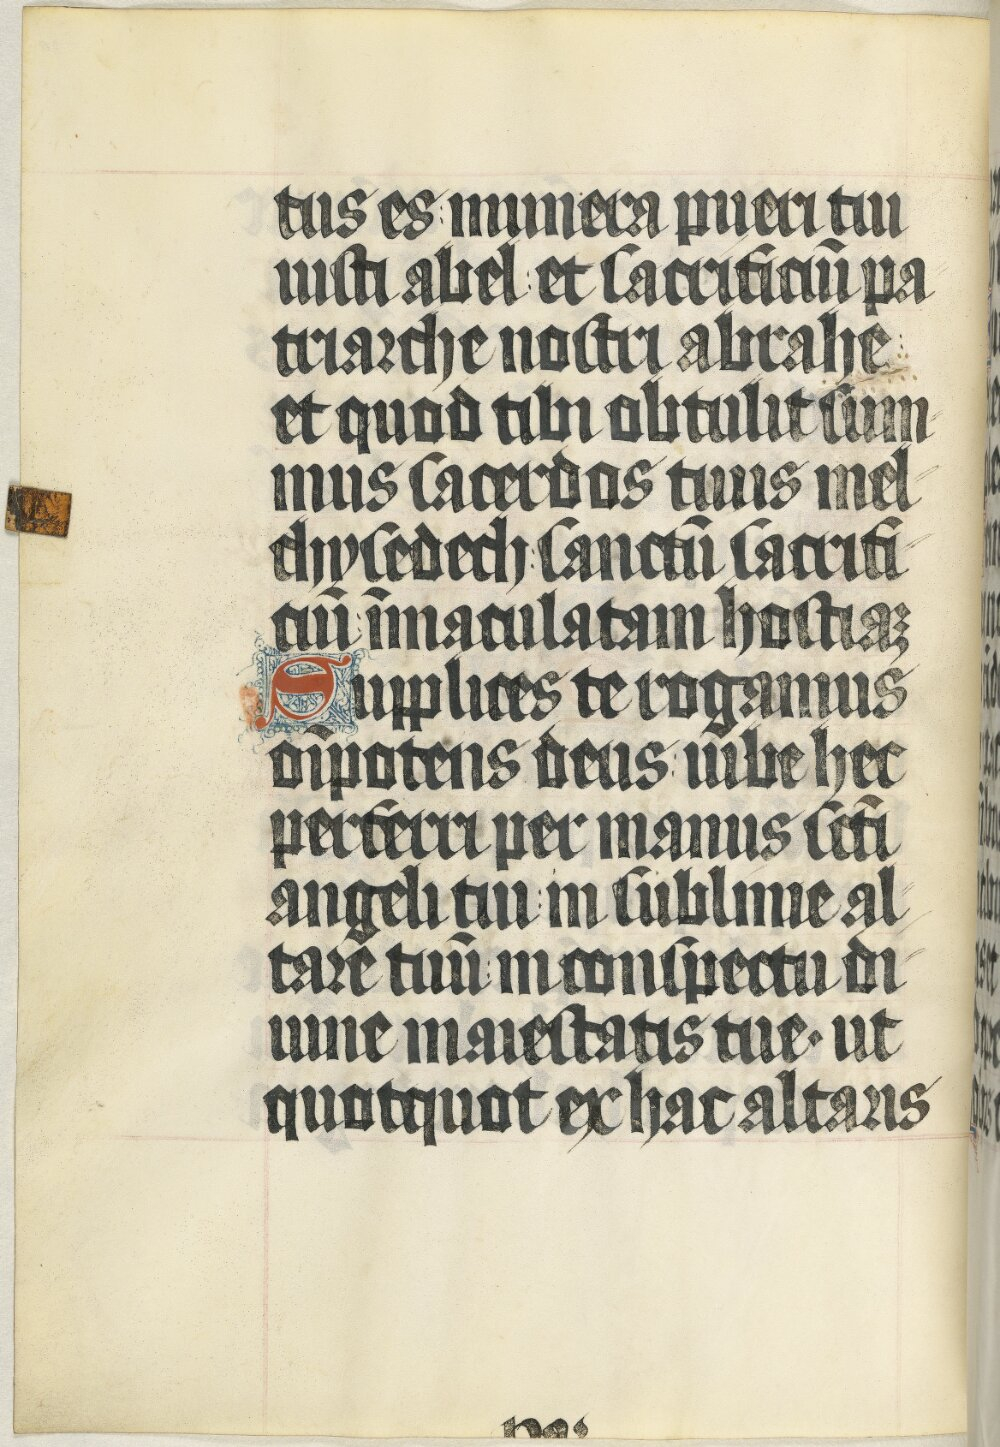 tus es: munera pueri tui
iusti abel: et sacrificiū pa
triarche nostri abrahe:
et quod tibi obtulit sum
mus sacerdos tuus mel
chysedech: sanctū sacrifi
ciū: īmaculatam hostiaꝫ
Supplices te rogamus
om̄ipotens deus: iube hec
perferri per manus sc̄ti
angeli tui: in sublime al
tare tuū: in conspectu di
uine maiestatis tue· ut
quotquot ex hac altaris